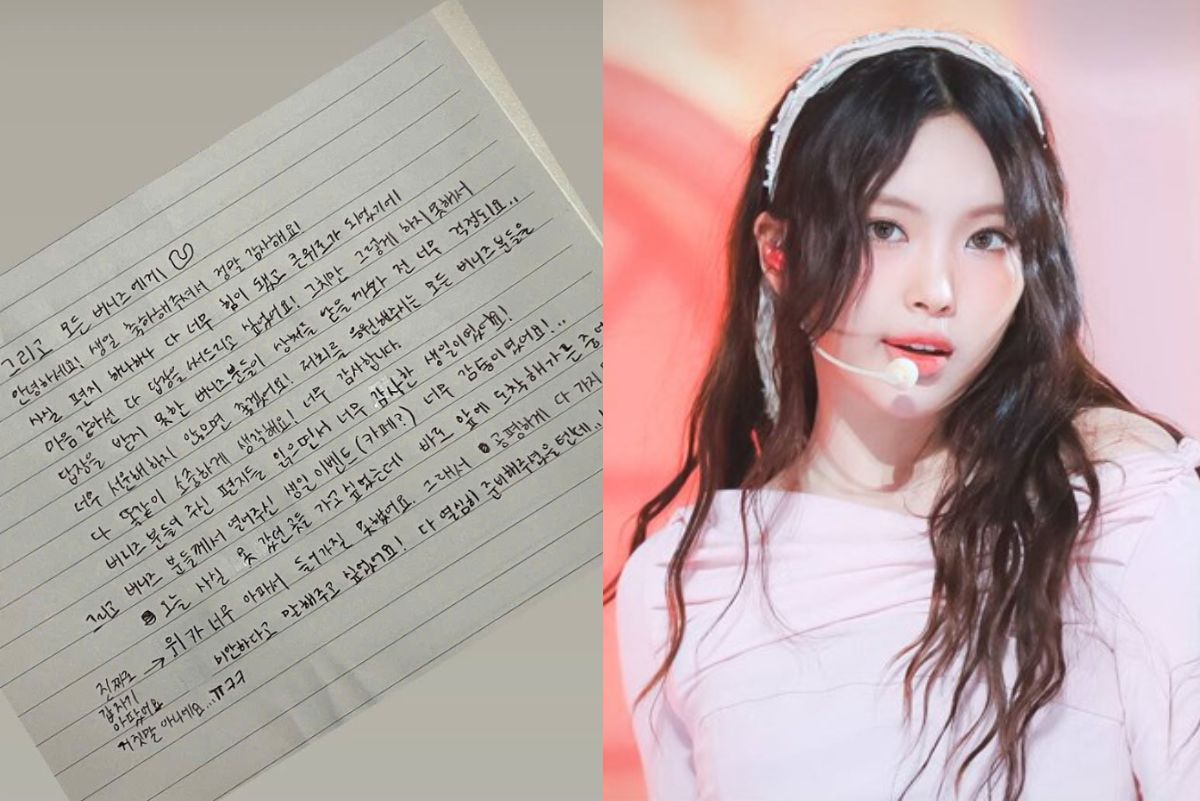 그리고 모든 버니즈에게
안녕하세요! 생일 축하해주셔서 정말 감사해요!
사실 편지 하나하나 다 너무 힘이 됐고 큰 위로가 되었기에
마음 같아선 다 답장을 써드리고 싶었어요! 그치만 그렇게 하지 못해서
답장을 받지 못한 버니즈 분들이 상처를 받을까봐 전 너무 걱정되요..
너무 서운해하지 않으면 좋겠어요! 저희를 응원해주시는 모든 버니즈 분들을
다 똑같이 소중하게 생각해요! 너무 감사합니다.
버니즈 분들이 주신 편지들 읽으면서 너무 감사한 생일이었어요!
그리고 버니즈 분들께서 열어주신 생일 이벤트(카페?) 너무 감동이었어요!...
오늘 사실 못 갔던 곳들 가고 싶었는데 바로 앞에 도착해가는 중에
위가 너무 아파서 들어가질 못했어요. 그래서 공평하게 다 가지
미안하다고 말해주고 싶었어요! 다 열심히 준비해주셨을텐데..
진짜로 →
갑자기
아팠어요
거짓말 아니에요...ㅠㅋㅋ